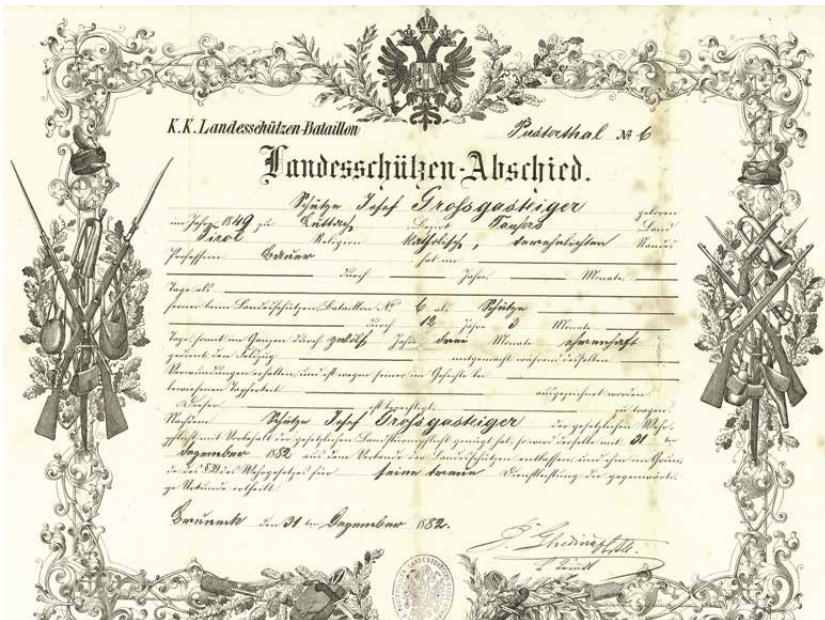 K.K. Landesschützen-Bataillon Pusterthal № 6
Landesschützen-Abschied.
Schütze Josef Grossgasteiger geboren
im Jahre 1849 zu Luttach Bezirk Taufers Land
Tirol Religion katholisch, verehelichten Standes
Profession Bauer hat im
durch Jahre Monate
Tage als
ferner beim Landesschützen-Bataillon № 6 als Schütze
durch 12 Jahre 3 Monate
Tage, somit im Ganzen durch zwölf Jahre drei Monate ehrenhaft
gedient, den Feldzug mitgemacht während desselben
Verwundungen erhalten, und ist wegen seiner im Gefechte bei
bewiesenen Tapferkeit ausgezeichnet worden
Dieser ist berechtigt zu tragen.
Nachdem Schütze Josef Grossgasteiger der gesetzlichen Wehr-
pflicht mit Vorbehalt der gesetzlichen Landsturmpflicht genügt hat, so wird derselbe mit 31 ten
Dezember 1882 aus dem Verbande der Landesschützen entlassen, und ihm im Grun-
de des § 20 des Wehrgesetzes für seine treue Dienstleistung die gegenwärti-
ge Urkunde ertheilt.
Bruneck den 31 ten Dezember 1882.